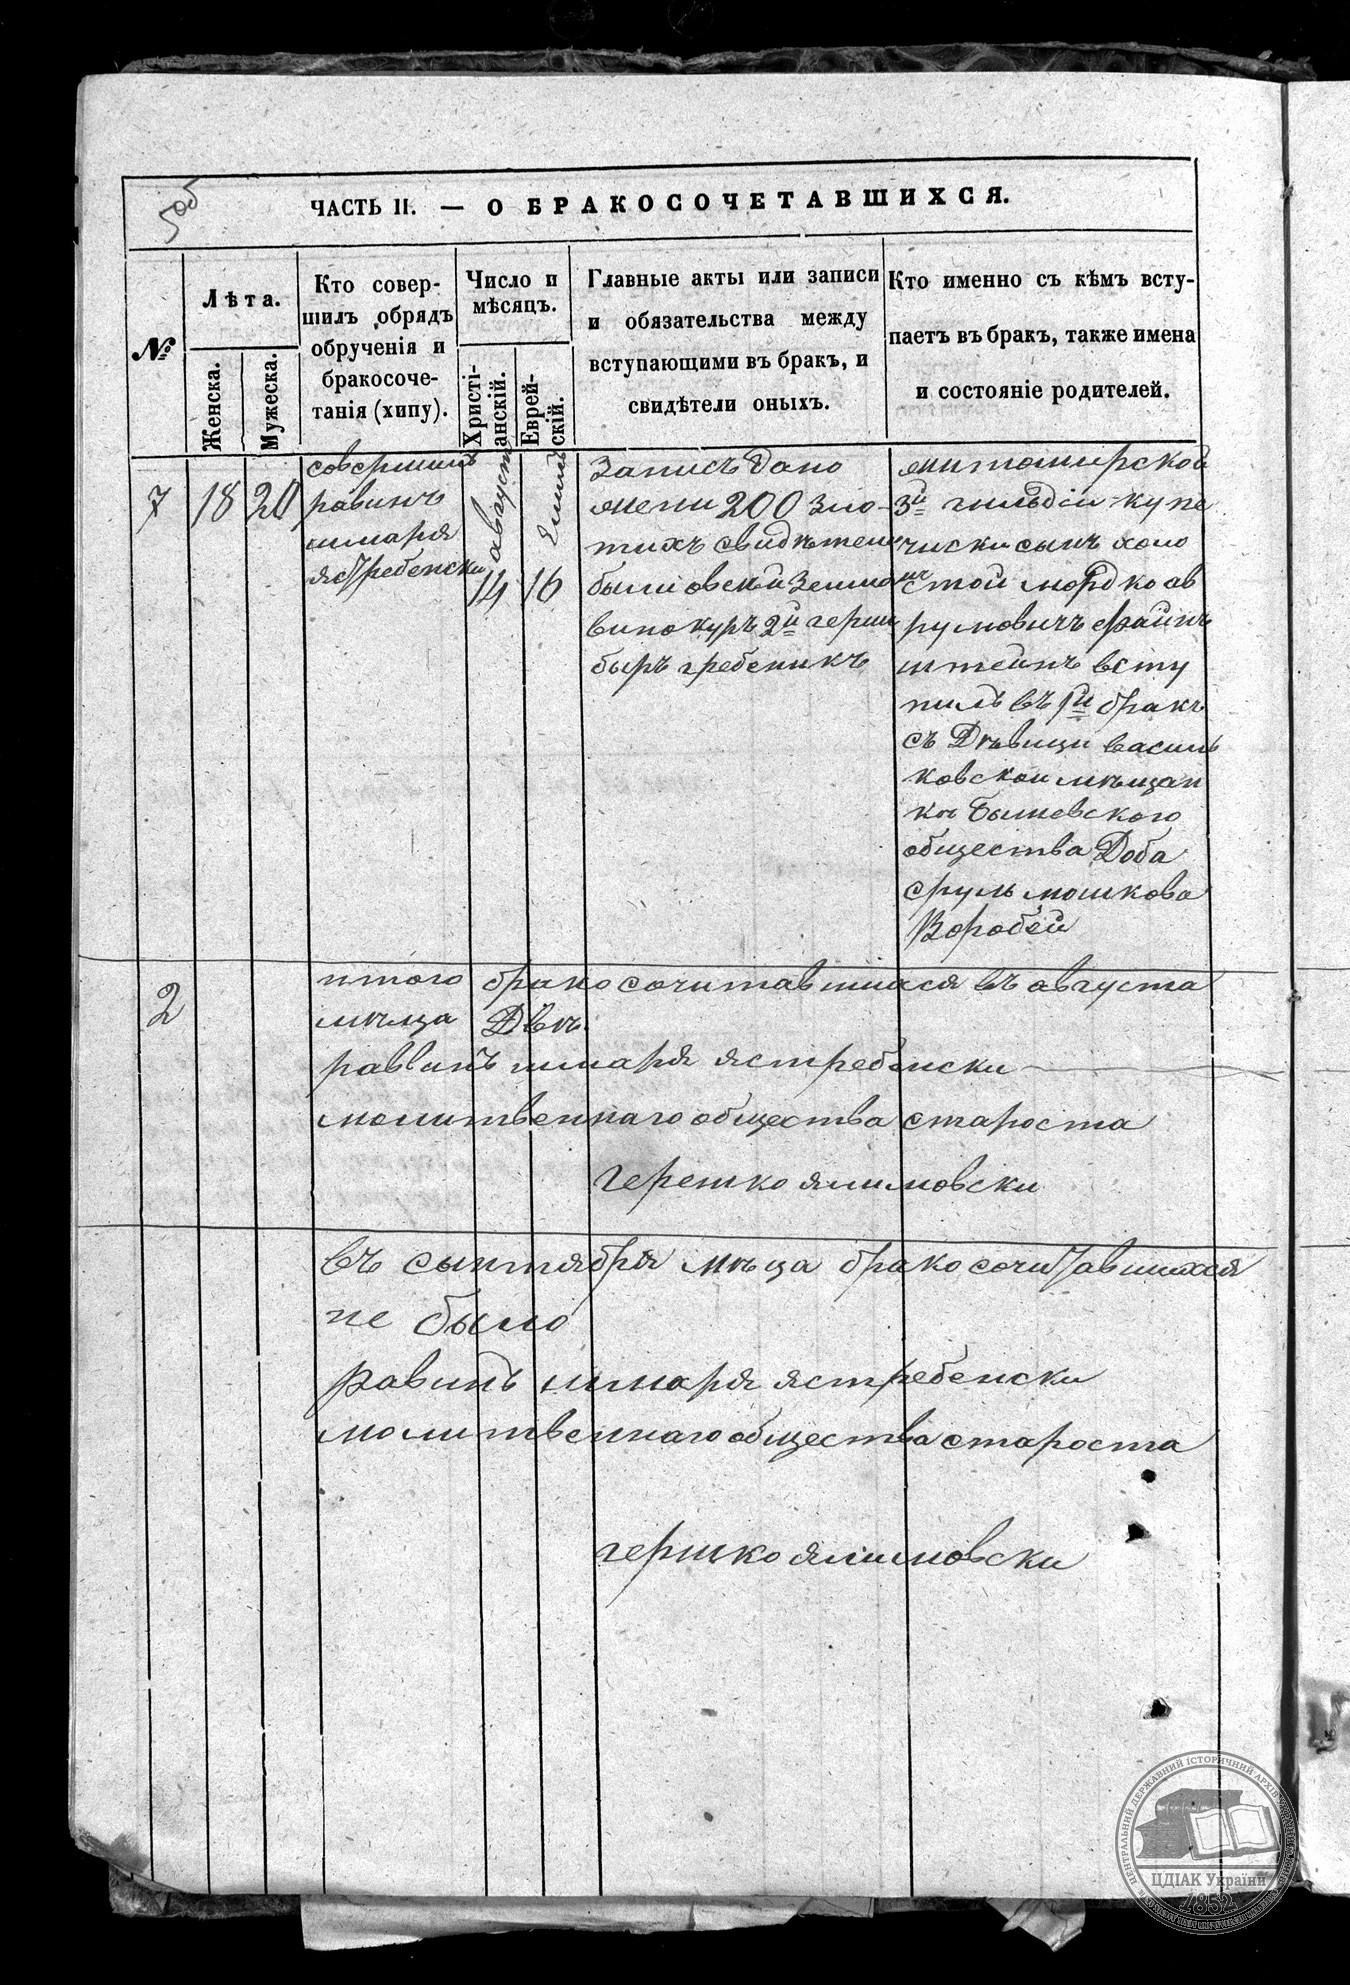 ЧАСТЬ II. — О БРАКОСОЧЕТАВШИХСЯ.
№
Лѣта.
Женска.
Мужеска.
Кто совер-
шилъ обрядъ
обрученія и
бракосоче-
танія (хипу).
Число и
мѣсяцъ.
Христі-
анскій.
Еврей-
скій.
Главные акты или записи
и обязательства между
вступающими въ бракъ, и
свидѣтели оныхъ.
Кто именно съ кѣмъ всту-
паетъ въ бракъ, также имена
и состояніе родителей.
7
18
20
совершилъ
равинъ
шмаря
ястребенски
августъ
14
16
Запись дано
жени 200 зло-
тихъ свидѣтели
были
винокуръ 2й герш
беръ гребеникъ
житомирской
3й гильдіи купе
чески сынъ холо
стой мордко ав
румовичъ файнъ
штейнъ всту
пилъ въ 1й бракъ
съ Дѣвици василь
ковской мѣщан
кѣ Бышевского
общества Доба
сруль мошкова
Воробей
2
итого бракосочитавшихся въ августа
мѣца Двѣ
раввинъ шмаря ястребенски
молитвеннаго общества староста
гершко ялимовски
въ сынтября мѣца бракосочитавшихся
не было
равинъ шмаря ястребенски
молитвеннаго общества староста
гершко ялимовски
ЦЕНТРАЛЬНИЙ ДЕРЖАВНИЙ ІСТОРИЧНИЙ АРХІВ УКРАЇНИ
ЦДІАК України
1852